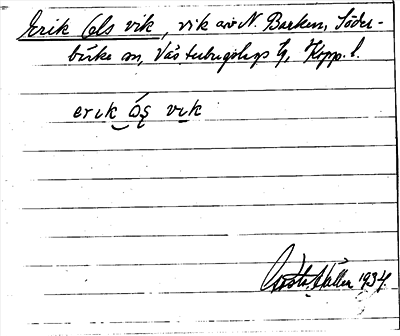 Erik Ols vik, vik av N. Barken, Söder-
bärke sn, Västerbergslags hd, Kopp. l.
erik ōş vik
1934.